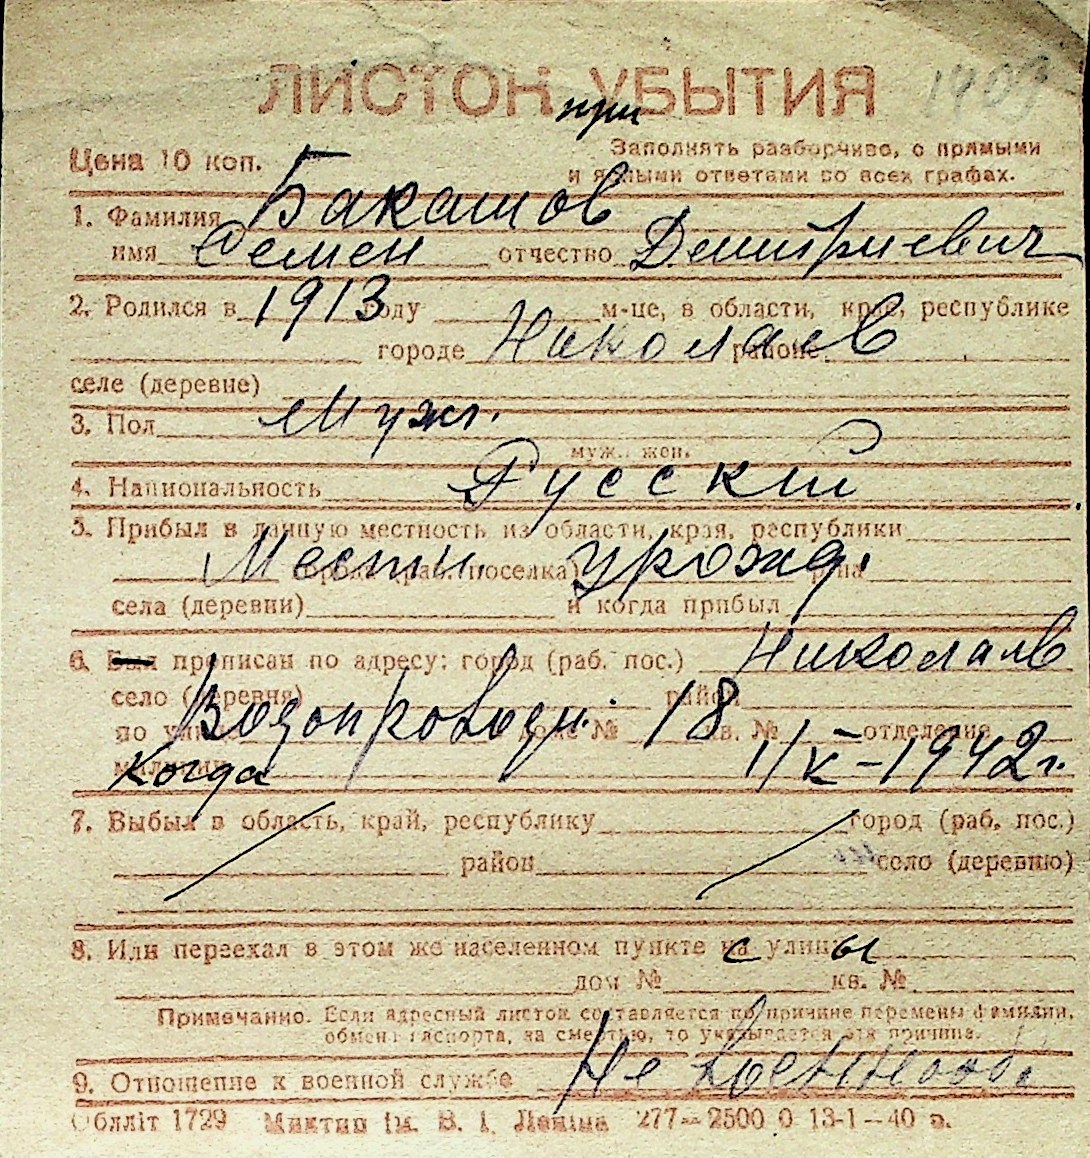 ЛИСТОК УБЫТИЯ
при
Цена 10 коп.
Заполнять разборчиво, с прямыми
и ясными ответами во всех графах.
1. Фамилия Бакашов
имя Семен отчество Дмитриевич
2. Родился в 1913 году м-це, в области, крае, республике
городе Николаев районе
селе (деревне)
3. Пол Мужг.
муж., жен.
4. Национальность Русский
5. Прибыл в данную местность из области, края, республики
Местн. урожд.
села (деревни) и когда прибыл
6. Был прописан по адресу: город (раб. пос.) Николаев
село (деревня) район
по улице Водопроводн. дом № 18 кв. № отделение
милиции когда 1/X-1942г.
7. Выбыл в область, край, республику город (раб. пос.)
район село (деревню)
8. Или переехал в этом же населенном пункте с улицы
дом № кв. №
Примечание. Если адресный листок составляется по причине перемены фамилии,
обмена паспорта, за смертью, то указывается эта причина.
9. Отношение к военной службе Не
Обллiт 1729 Миктип iм. В. I. Ленiна 277—2500 0 13-1—40 в.